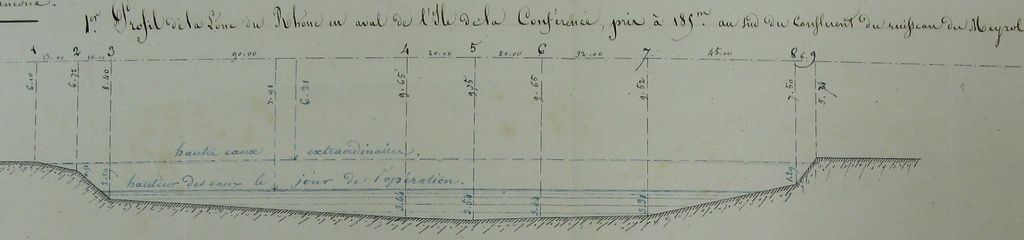 1er Profil de la Lone du Rhône en aval de l'Ile de la Conférence, pris à 185m au Sud du Confluent du ruisseau du Meyrol
1 2 3 4 5 6 7 8 9
90.00 20.00 20.00 32.00 45.00 6
6.10 6.72 8.40 7.91 6.21 9.65 9.75 9.65 9.52 7.50
haute eaux extraordinaire.
hauteur des eaux le jour de l'opération.